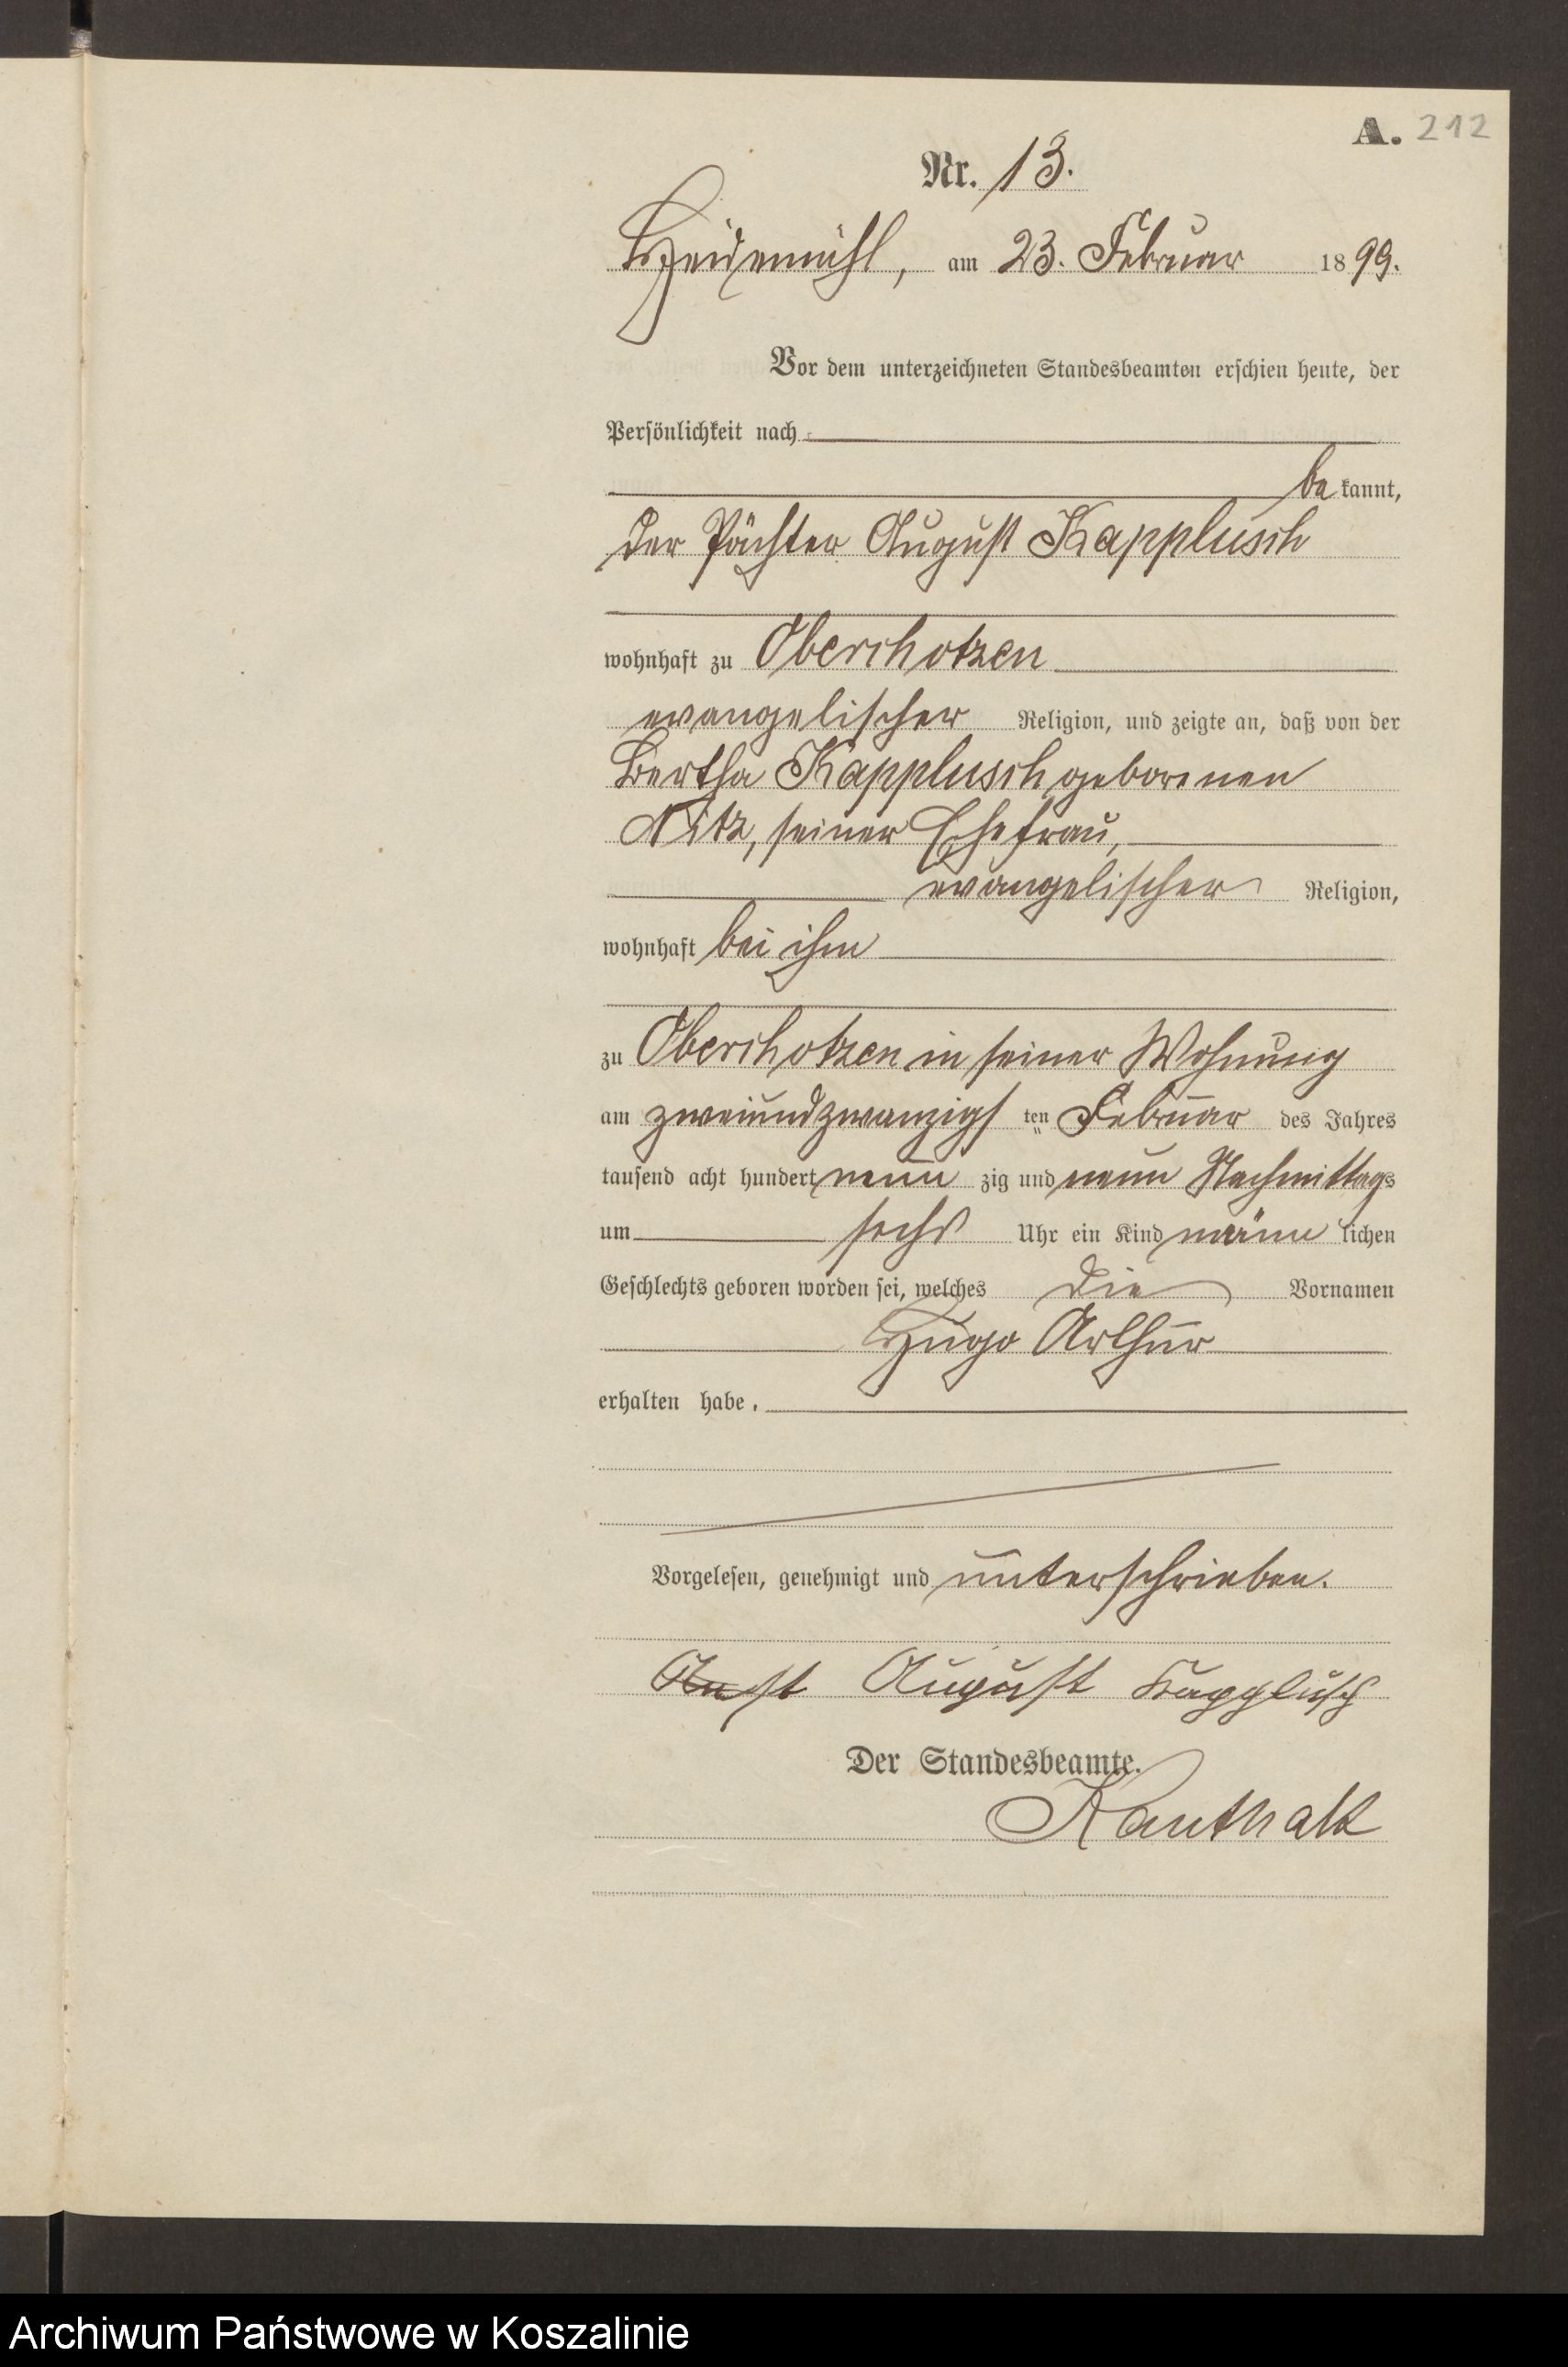 A. 212
Nr. 13.
Heidemühl, am 23. Februar 1899.
Vor dem unterzeichneten Standesbeamten erschien heute, der
Persönlichkeit nach
be kannt,
der Pächter August Kapplusch
wohnhaft zu Oberchotzen
evangelischer Religion, und zeigte an, daß von der
Bertha Kapplusch geborenen
Nitz, seiner Ehefrau,
evangelischer Religion,
wohnhaft bei ihm
zu Oberchotzen in seiner Wohnung
am zweiundzwanzigs ten Februar des Jahres
tausend acht hundert neun zig und neun Nachmittags
um sechs Uhr ein Kind männ lichen
Geschlechts geboren worden sei, welches die Vornamen
Hugo Arthur
erhalten habe.
Vorgelesen, genehmigt und unterschrieben.
August Kapplusch
Der Standesbeamte.
Kanthak
Archiwum Państwowe w Koszalinie